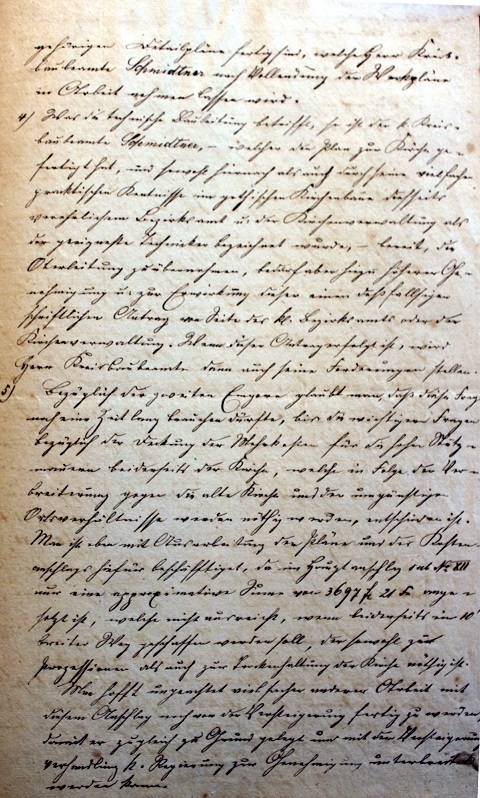 gehörigen Detailpläne fertig sind, welche Herr Kreis-
baubeamte Schmidtner nach Vollendung der Werkpläne
in Arbeit nehmen lassen wird.
4) Was die technische Bauleitung betrifft, so ist der k. Kreis-
baubeamte Schmidtner, – welcher die Plan zur Kirche ge-
fertigt hat, und sowohl hiernach als auch durch seine vielfachen
praktischen Kentnisse im gothischen Kirchenbaue diesseits
verehrlichem Bezirksamt u. der Kirchenverwaltung als
der geeigneteste Techniker bezeichnet wurde, – bereit, die
Oberleitung zu übernehmen, bedarf aber hiezu höheren Ge-
nehmigung u. zur Erwirkung dieser einen deßfallsigen
schriftlichen Antrag von Seite des K. Bezirksamts oder der
Kirchenverwaltung. Wenn dieser Antrag erfolgt ist, wird
Herr Kreisbaubeamte dann auch seine Forderungen stellen.
5) Bezüglich der zweiten Frage glaubt man, daß diese Frag
noch eine Zeit lang beruhen dürfte, bis die wichtigere Fragen
bezüglich der Deckung der Mehrkosten für die hohen Stütz-
mauern beiderseits der Kirche, welche in Folge der Ver-
breiterung gegen die alte Kirche und der ungünstige
Ortsverhältnisse werden nöthig werden, entschieden ist.
Man ist eben mit Ausarbeitung der Pläne und des Kosten-
anschlags hiefür beschäfftiget, da im Hauptanschlag sub No XII
nur eine approximative Summe von 3697 f. 21 x. ange-
setzt ist, welche nicht ausreicht, wenn beiderseits ein 10'
breiter Weg geschaffen werden soll, der sowohl zur
Prozessionen als auch zur Trockenhaltung der Kirche nöthig ist.
Man hofft ungeachtet vielfacher anderer Arbeit mit
diesem Anschlag noch vor der Versteigerung fertig zu werden,
damit er zugleich zu Grund gelegt und mit der Versteigerung
verhandlung k. Regierung zur Genehmigung unterbreitet
werden könne.